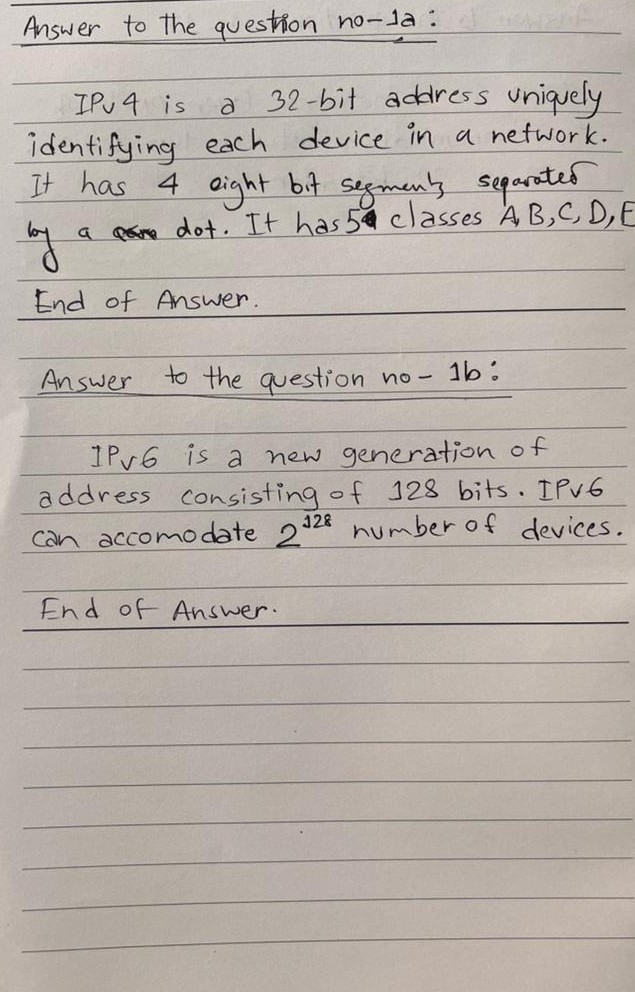 Answer to the question no-1a :
IPv4 is a 32-bit address uniquely
identifying each device in a network.
It has 4 eight bit segments separated
by a dot. It has 5 classes A, B, C, D, E
End of Answer.
Answer to the question no - 1b :
IPv6 is a new generation of
address consisting of 128 bits. IPv6
can accomodate 2^128 number of devices.
End of Answer.